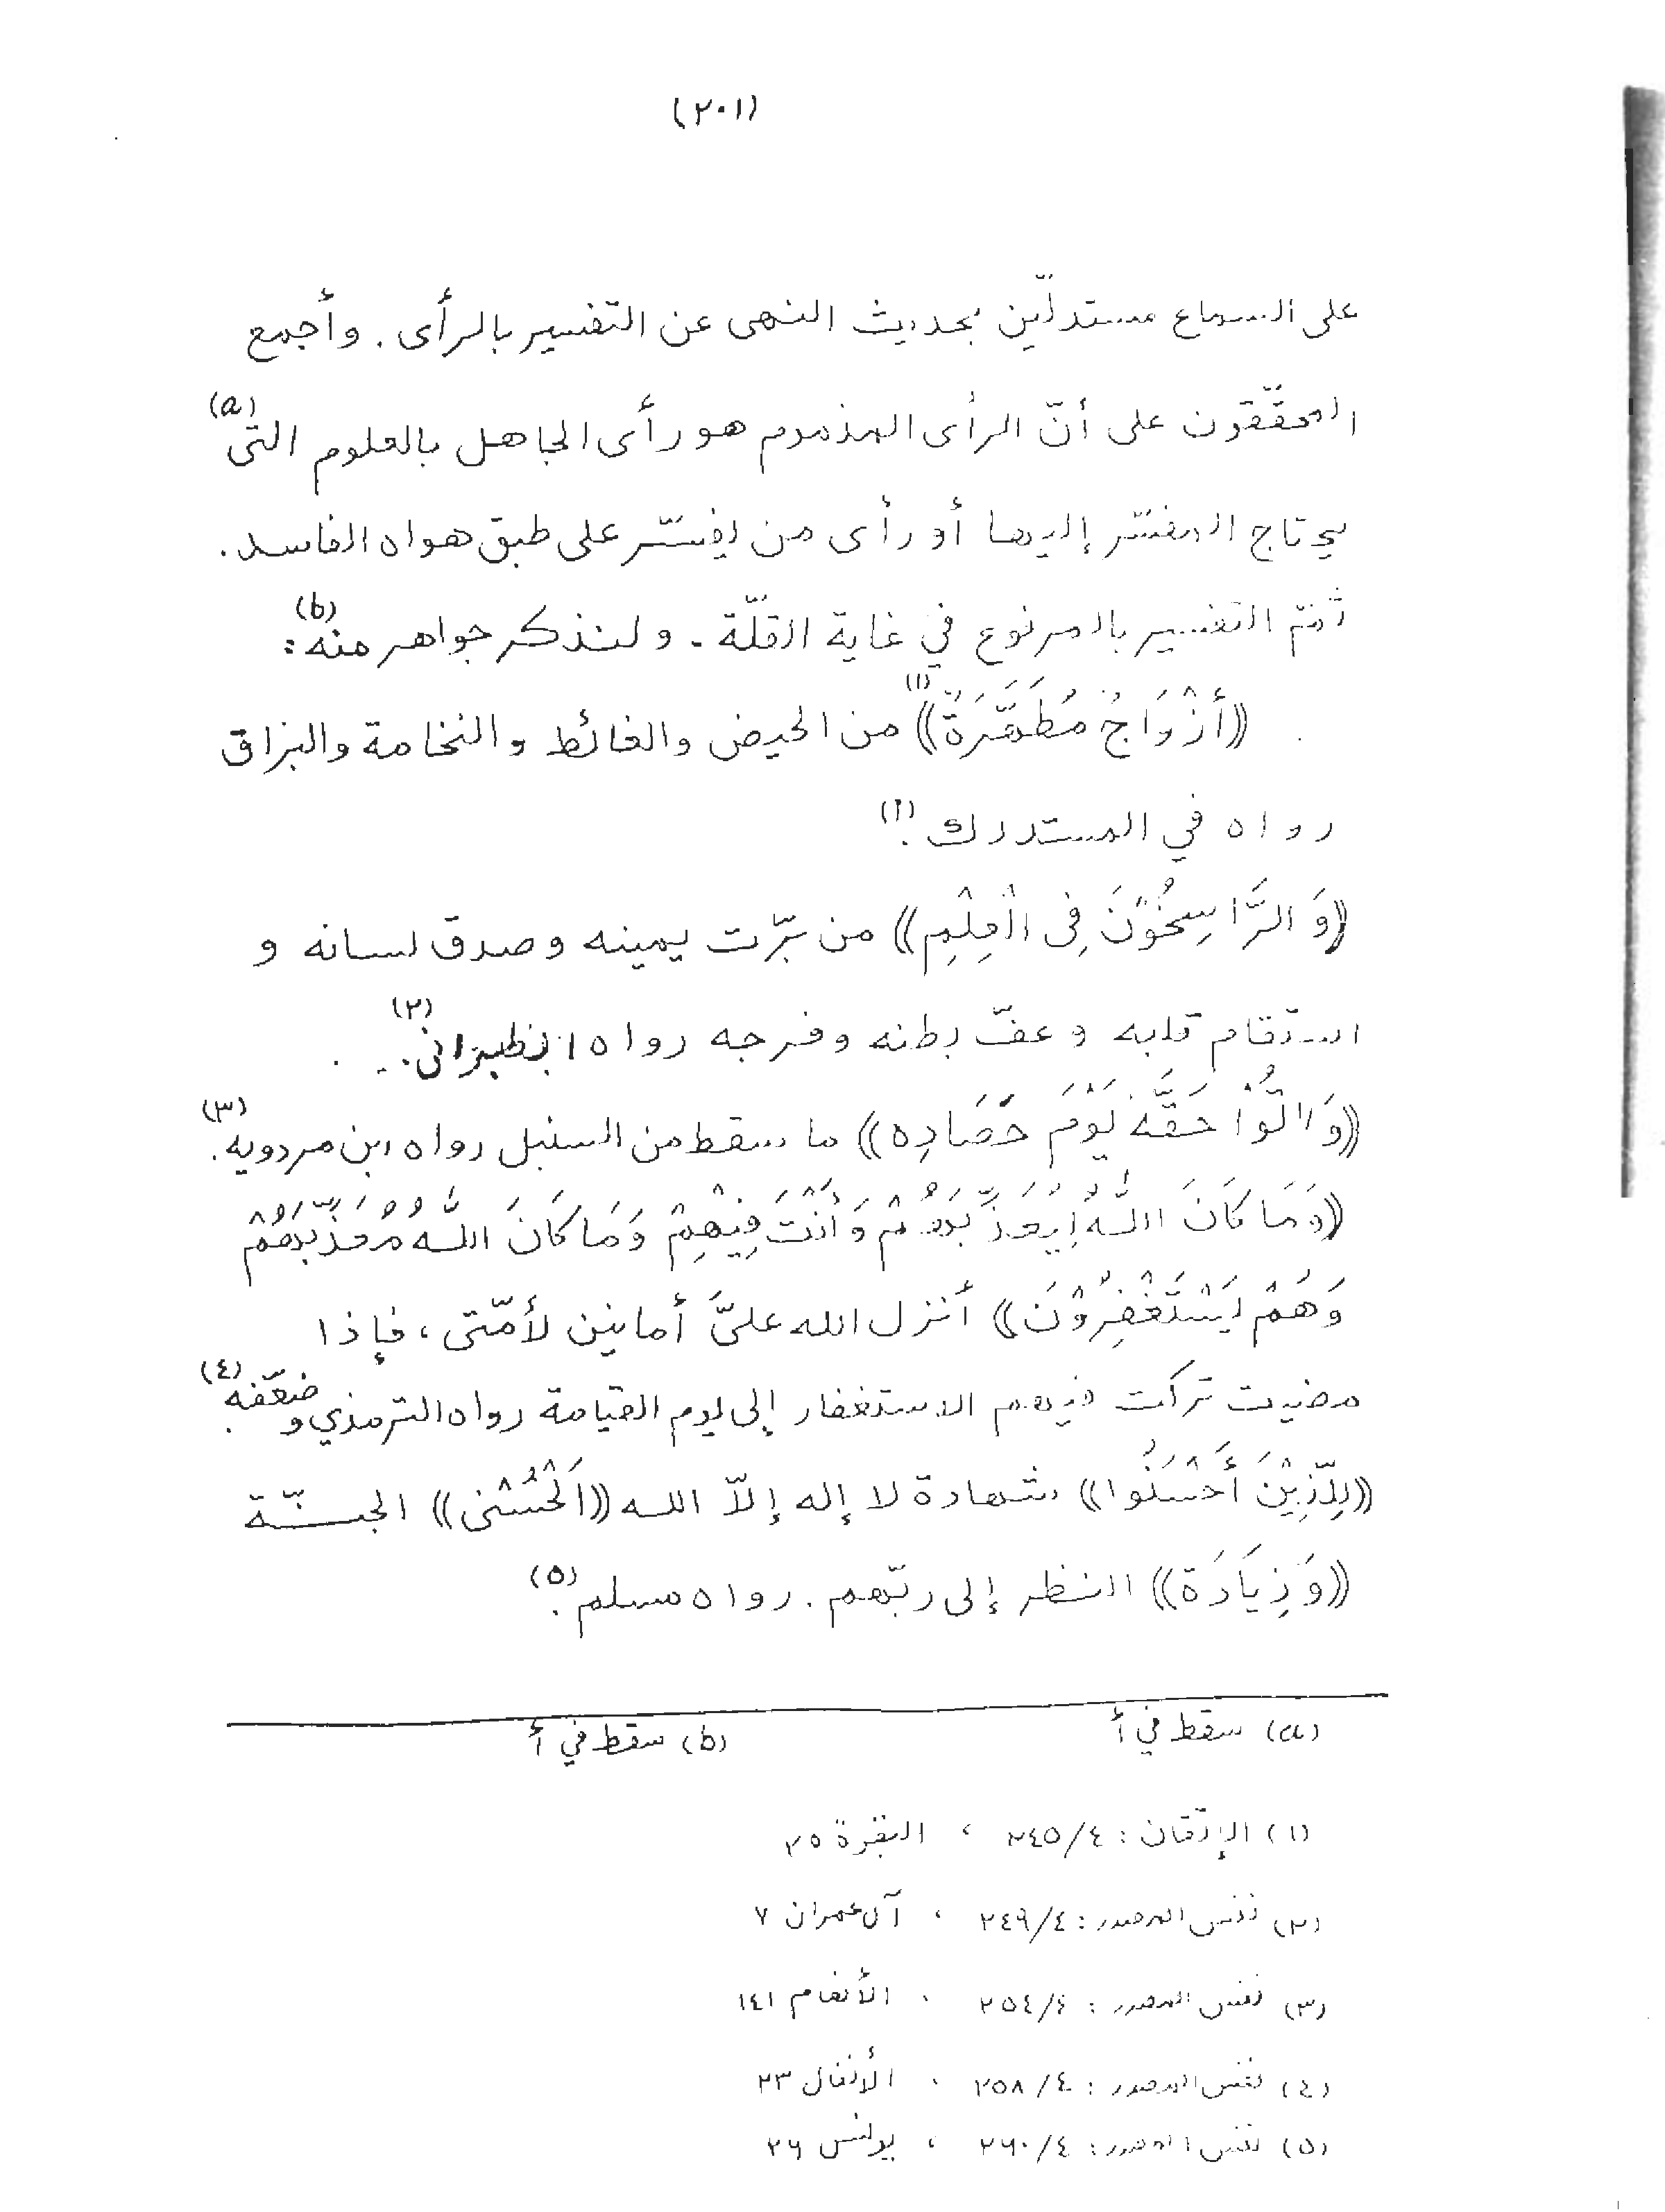 (٢٠١)
على السماع مستدلّين بحديث النهى عن التفسير بالرأى . وأجمع
المحقّقون على أنّ الرأى المذموم هو رأى الجاهل بالعلوم التى (a)
يحتاج المفسّر إليها أو رأى من يفسّر على طبق هواه الفاسد .
ثمّ التفسير بالمرفوع في غاية القلّة . ولنذكر جواهر منه (b) :
((أَزْوَاجٌ مُطَهَّرَةٌ)) (١) من الحيض والغائط والنخامة والبزاق
رواه في المستدرك . (١)
((وَالرَّاسِخُوْنَ فِى الْعِلْمِ)) من برّت يمينه وصدق لسانه و
استقام قلبه وعفّ بطنه وفرجه رواه الطبرانى . (٢)
((وَاٰتُوْا حَقَّهٗ يَوْمَ حَصَادِه)) ما سقط من السنبل رواه ابن مردويه . (٣)
((وَمَا كَانَ اللّٰهُ لِيُعَذِّبَهُمْ وَأَنْتَ فِيْهِمْ وَمَا كَانَ اللّٰهُ مُعَذِّبَهُمْ
وَهُمْ يَسْتَغْفِرُوْنَ)) أنزل الله علىَّ أمانين لأمّتى ، فإذا
مضيت تركت فيهم الاستغفار إلى يوم القيامة رواه الترمذي وضعّفه . (٤)
((لِلَّذِيْنَ أَحْسَنُوا)) شهادة لا إله إلاّ الله ((اَلْحُسْنٰى)) الجنّة
((وَزِيَادَة)) النظر إلى ربّهم . رواه مسلم . (٥)
(a) سقط في أ (b) سقط في أ
(١) الإتقان : ٢٤٥/٤ ، البقرة ٢٥
(٢) نفس المصدر : ٢٤٩/٤ ، آل عمران ٧
(٣) نفس المصدر : ٢٥٤/٤ ، الأنعام ١٤١
(٤) نفس المصدر : ٢٥٨/٤ ، الأنفال ٢٣
(٥) نفس المصدر : ٢٦٠/٤ ، يونس ٢٦